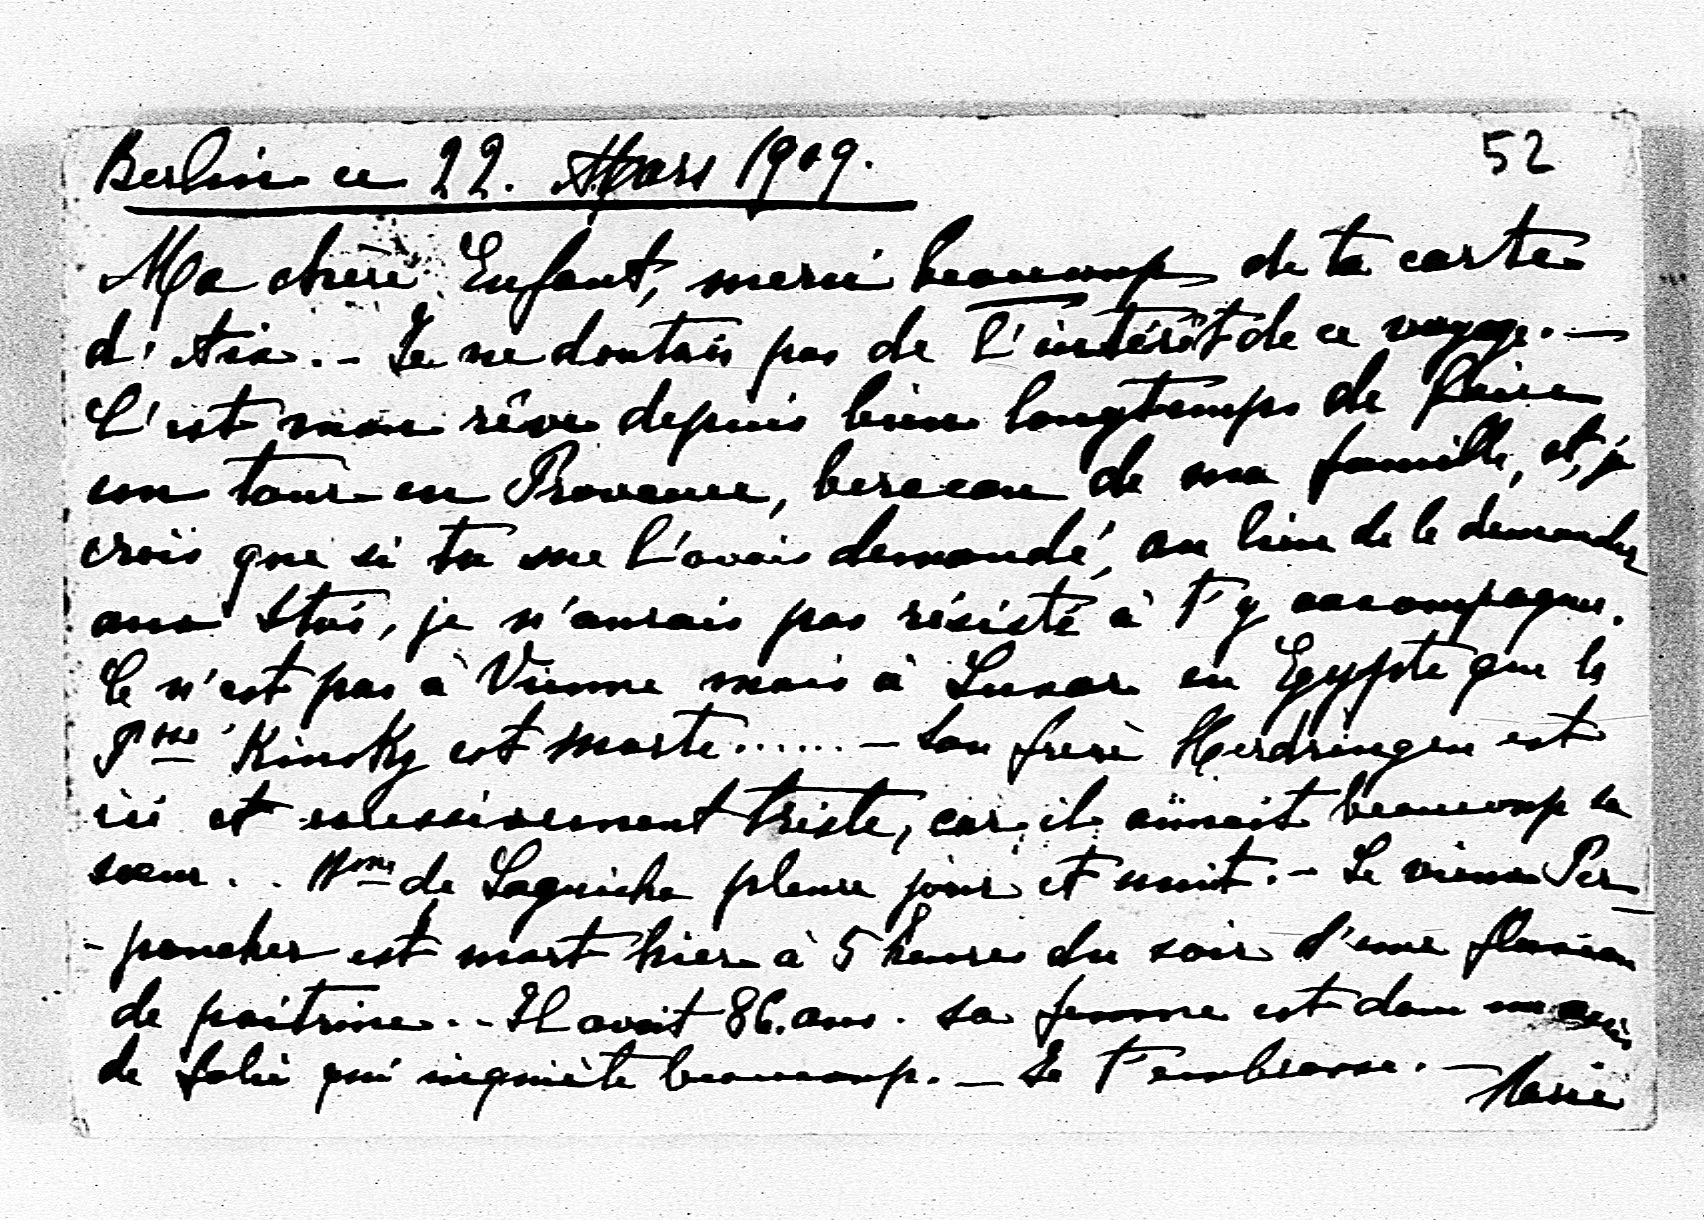 Berlin ce 22. Mars 1909.
52
Ma chère Enfant, merci beaucoup de ta carte
d'Aix. - Je ne doutais pas de l'intérêt de ce voyage. -
C'est mon rêve depuis bien longtemps de faire
un tour en Provence, berceau de ma famille, et, je
crois que si tu me l'avais demandé, au lieu de le demander
aux Stoï, je n'aurais pas résisté à t'y accompagner.
Ce n'est pas à Vienne mais à Luxor en Egypte que la
Psse Kinsky est morte...... - Son frère Herdringen est
ici et excessivement triste, car il aimait beaucoup sa
sœur. . Mme de Laguiche pleure jour et nuit. - Le vieux Per-
-poncher est mort hier à 5 heures du soir d'une fluxion
de poitrine. - Il avait 86. ans. sa femme est dans un accès
de folie qui inquiète beaucoup. - Je t'embrasse. -
Marie